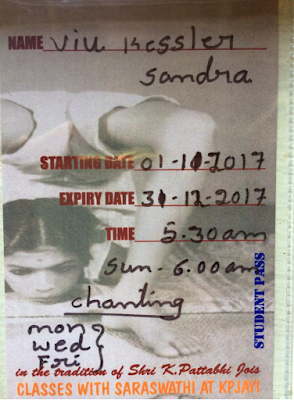 NAME Viu Kessler
Sandra
STARTING DATE 01-10-2017
EXPIRY DATE 31-12-2017
TIME 5.30am
Sun - 6.00am
chanting
mon
wed
Fri
STUDENT PASS
in the tradition of Shri K.Pattabhi Jois
CLASSES WITH SARASWATHI AT KPJAYI